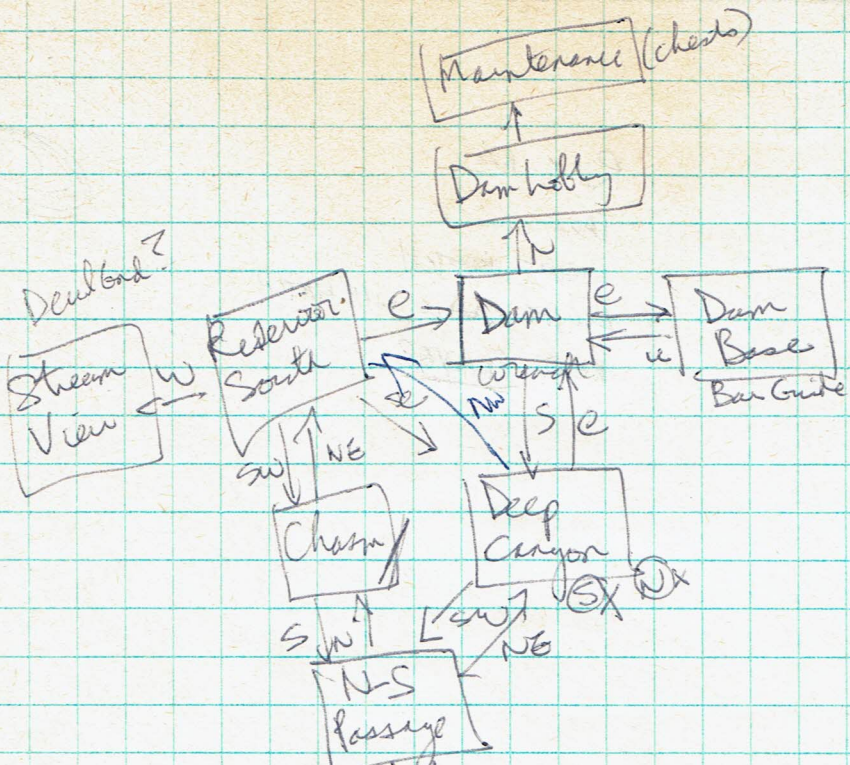 Maintenance (chests)
Dam Lobby
N
Dead End?
Stream
View
W
Reservoir
South
e
Dam
e
w
Dam
Base
Bar Guide
wrench
se
NW
S
e
SW
NE
Chasm
Deep
Canyon
S X
N X
S
N
SW
NE
N-S
Passage